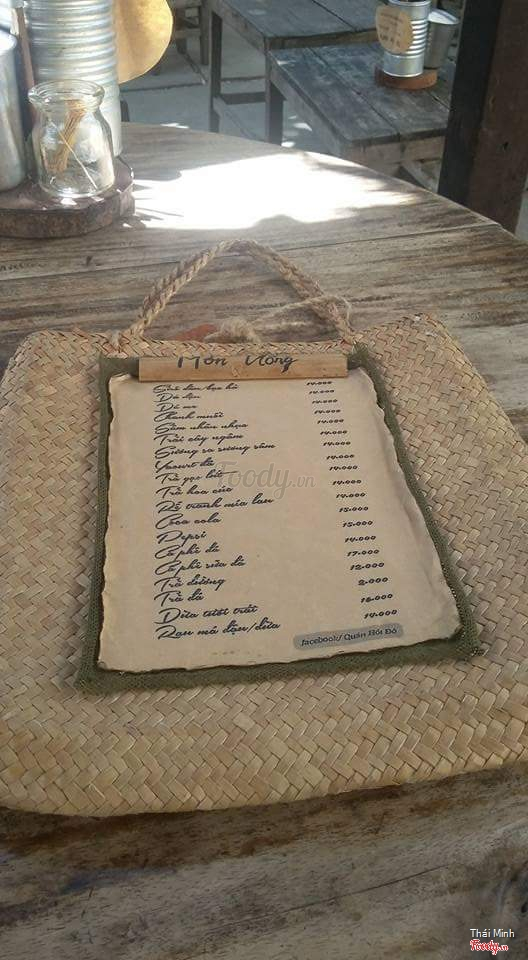 Món Uống
14.000
14.000
Đá me 14.000
Chanh muối 14.000
Sâm nhãn nhục 14.000
Trái cây ngâm 14.000
Sương sa sương sâm 14.000
Yaourt đá 14.000
Trà gạo lứt 14.000
Trà hoa cúc 14.000
Rễ tranh mía lau 14.000
Coca cola 15.000
Pepsi 15.000
Cà phê đá 14.000
Cà phê sữa đá 17.000
Trà đường 12.000
Trà đá 2.000
Dừa tươi trái 16.000
Rau má đậu/dừa 14.000
facebook/ Quán Hồi Đó
Foody.vn
Thái Minh
Foody.vn